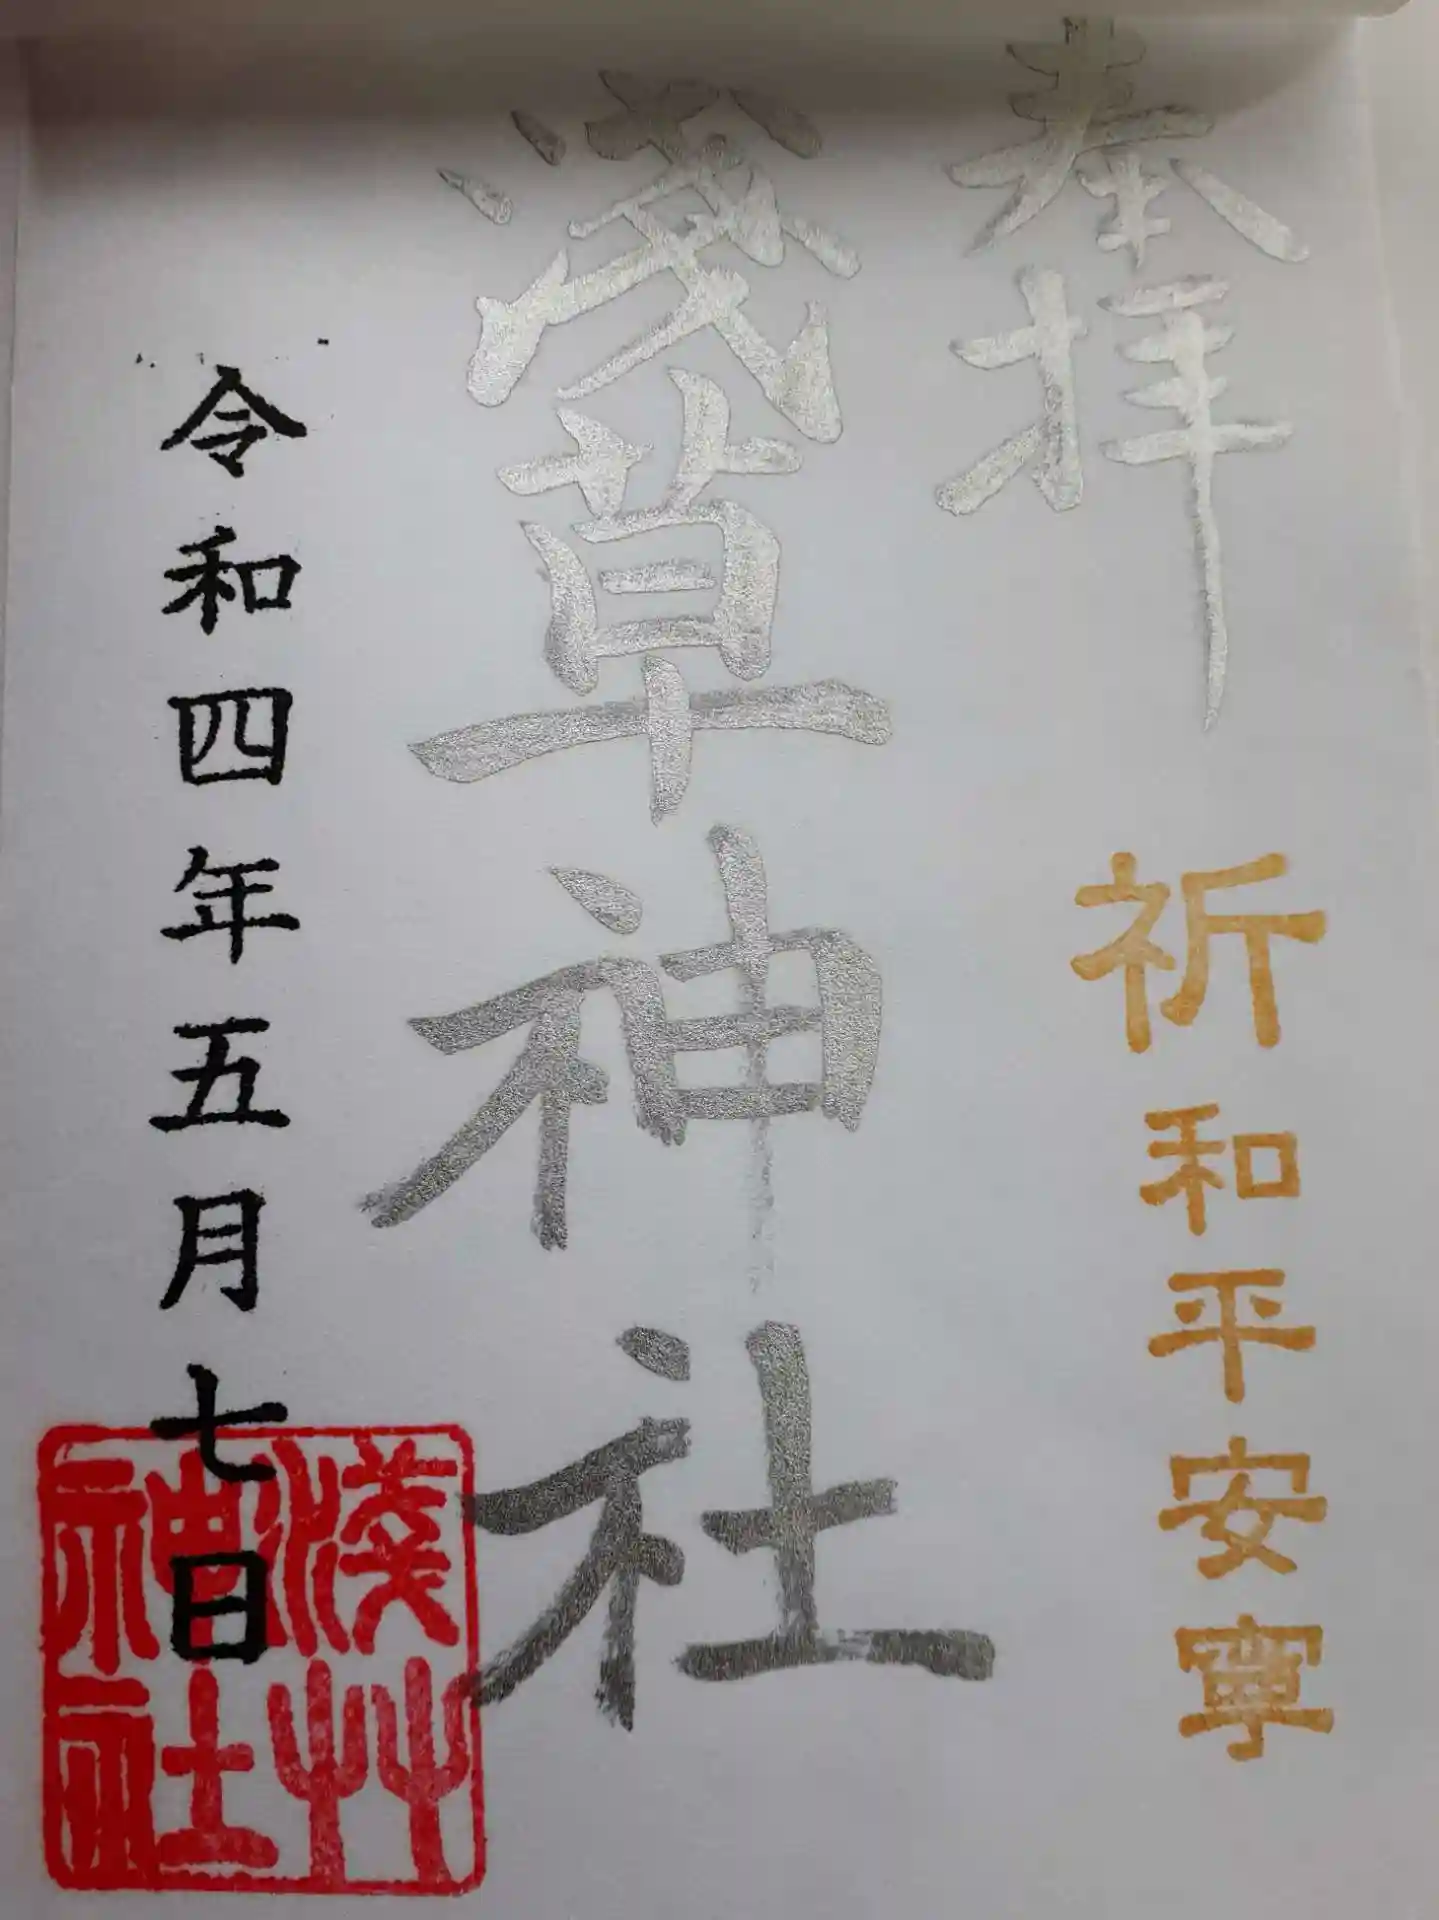 奉拝
祈和平安寧
浅草神社
令和四年五月七日
淺艸神社